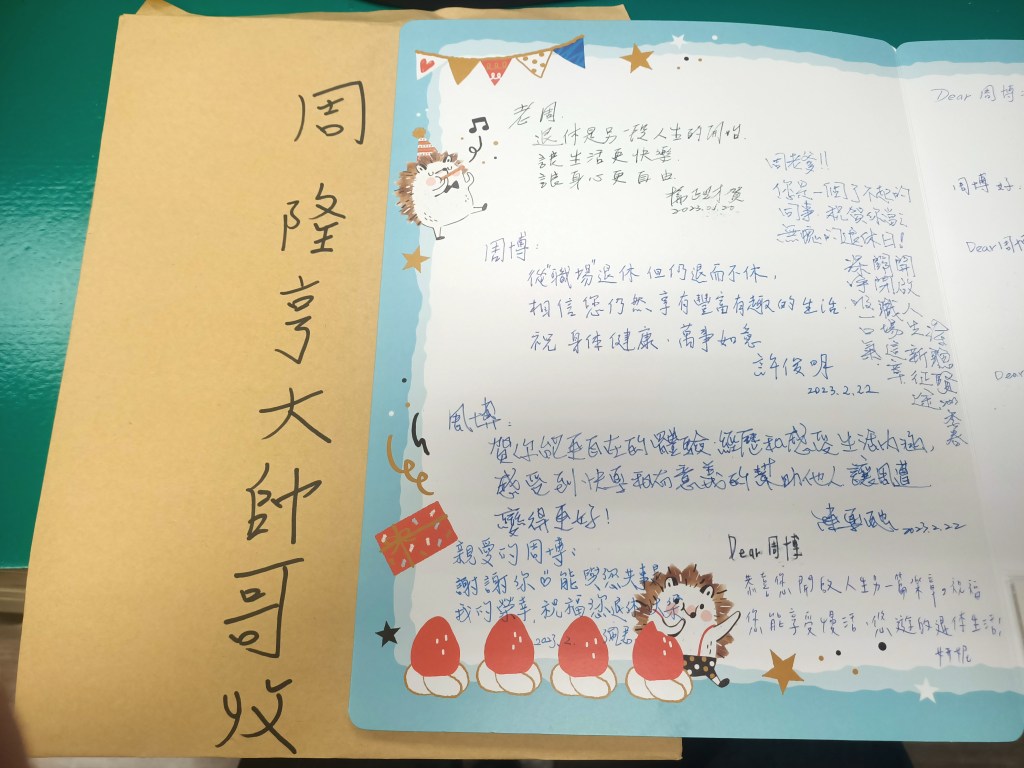 周隆亨大帥哥收
老周.
退休是另一段人生的開始.
讓生活更快樂.
讓身心更自由.
2023.2.22.
周老爹!!
您是一個了不起的
同事,祝賀您
無愧的退休日!
周博:
從"職場"退休 但仍退而不休,
相信您仍然享有豐富有趣的生活.
祝 身体健康.萬事如意
許俊明
2023.2.22
開啟人生新征途
周博:
賀你能更自在的體驗.經歷和感受生活內涵,
感受到快樂和有意義的幫助他人 讓周遭
變得更好!
2023.2.22
親愛的周博:
謝謝你♡能與您共事是
我的榮幸,祝福您退休
2023.2.
Dear 周博
恭喜您開啟人生另一篇樂章。祝福
您能享受慢活、悠遊的退休生活!
Dear 周博:
周博好.
Dear周博
Dear